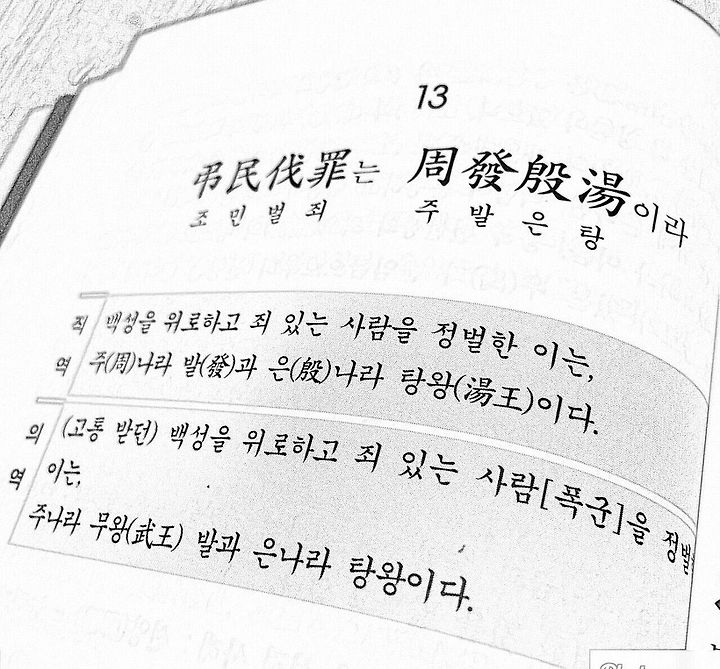 13
弔民伐罪는 周發殷湯이라
조민벌죄 주발은탕
직역 백성을 위로하고 죄 있는 사람을 정벌한 이는,
주(周)나라 발(發)과 은(殷)나라 탕왕(湯王)이다.
의역 (고통 받던) 백성을 위로하고 죄 있는 사람[폭군]을 정벌
이는,
주나라 무왕(武王) 발과 은나라 탕왕이다.